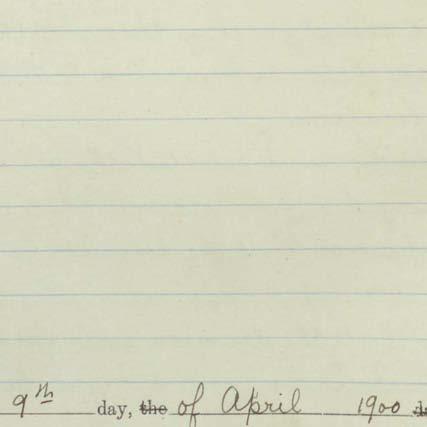 9th day, the of April 1900